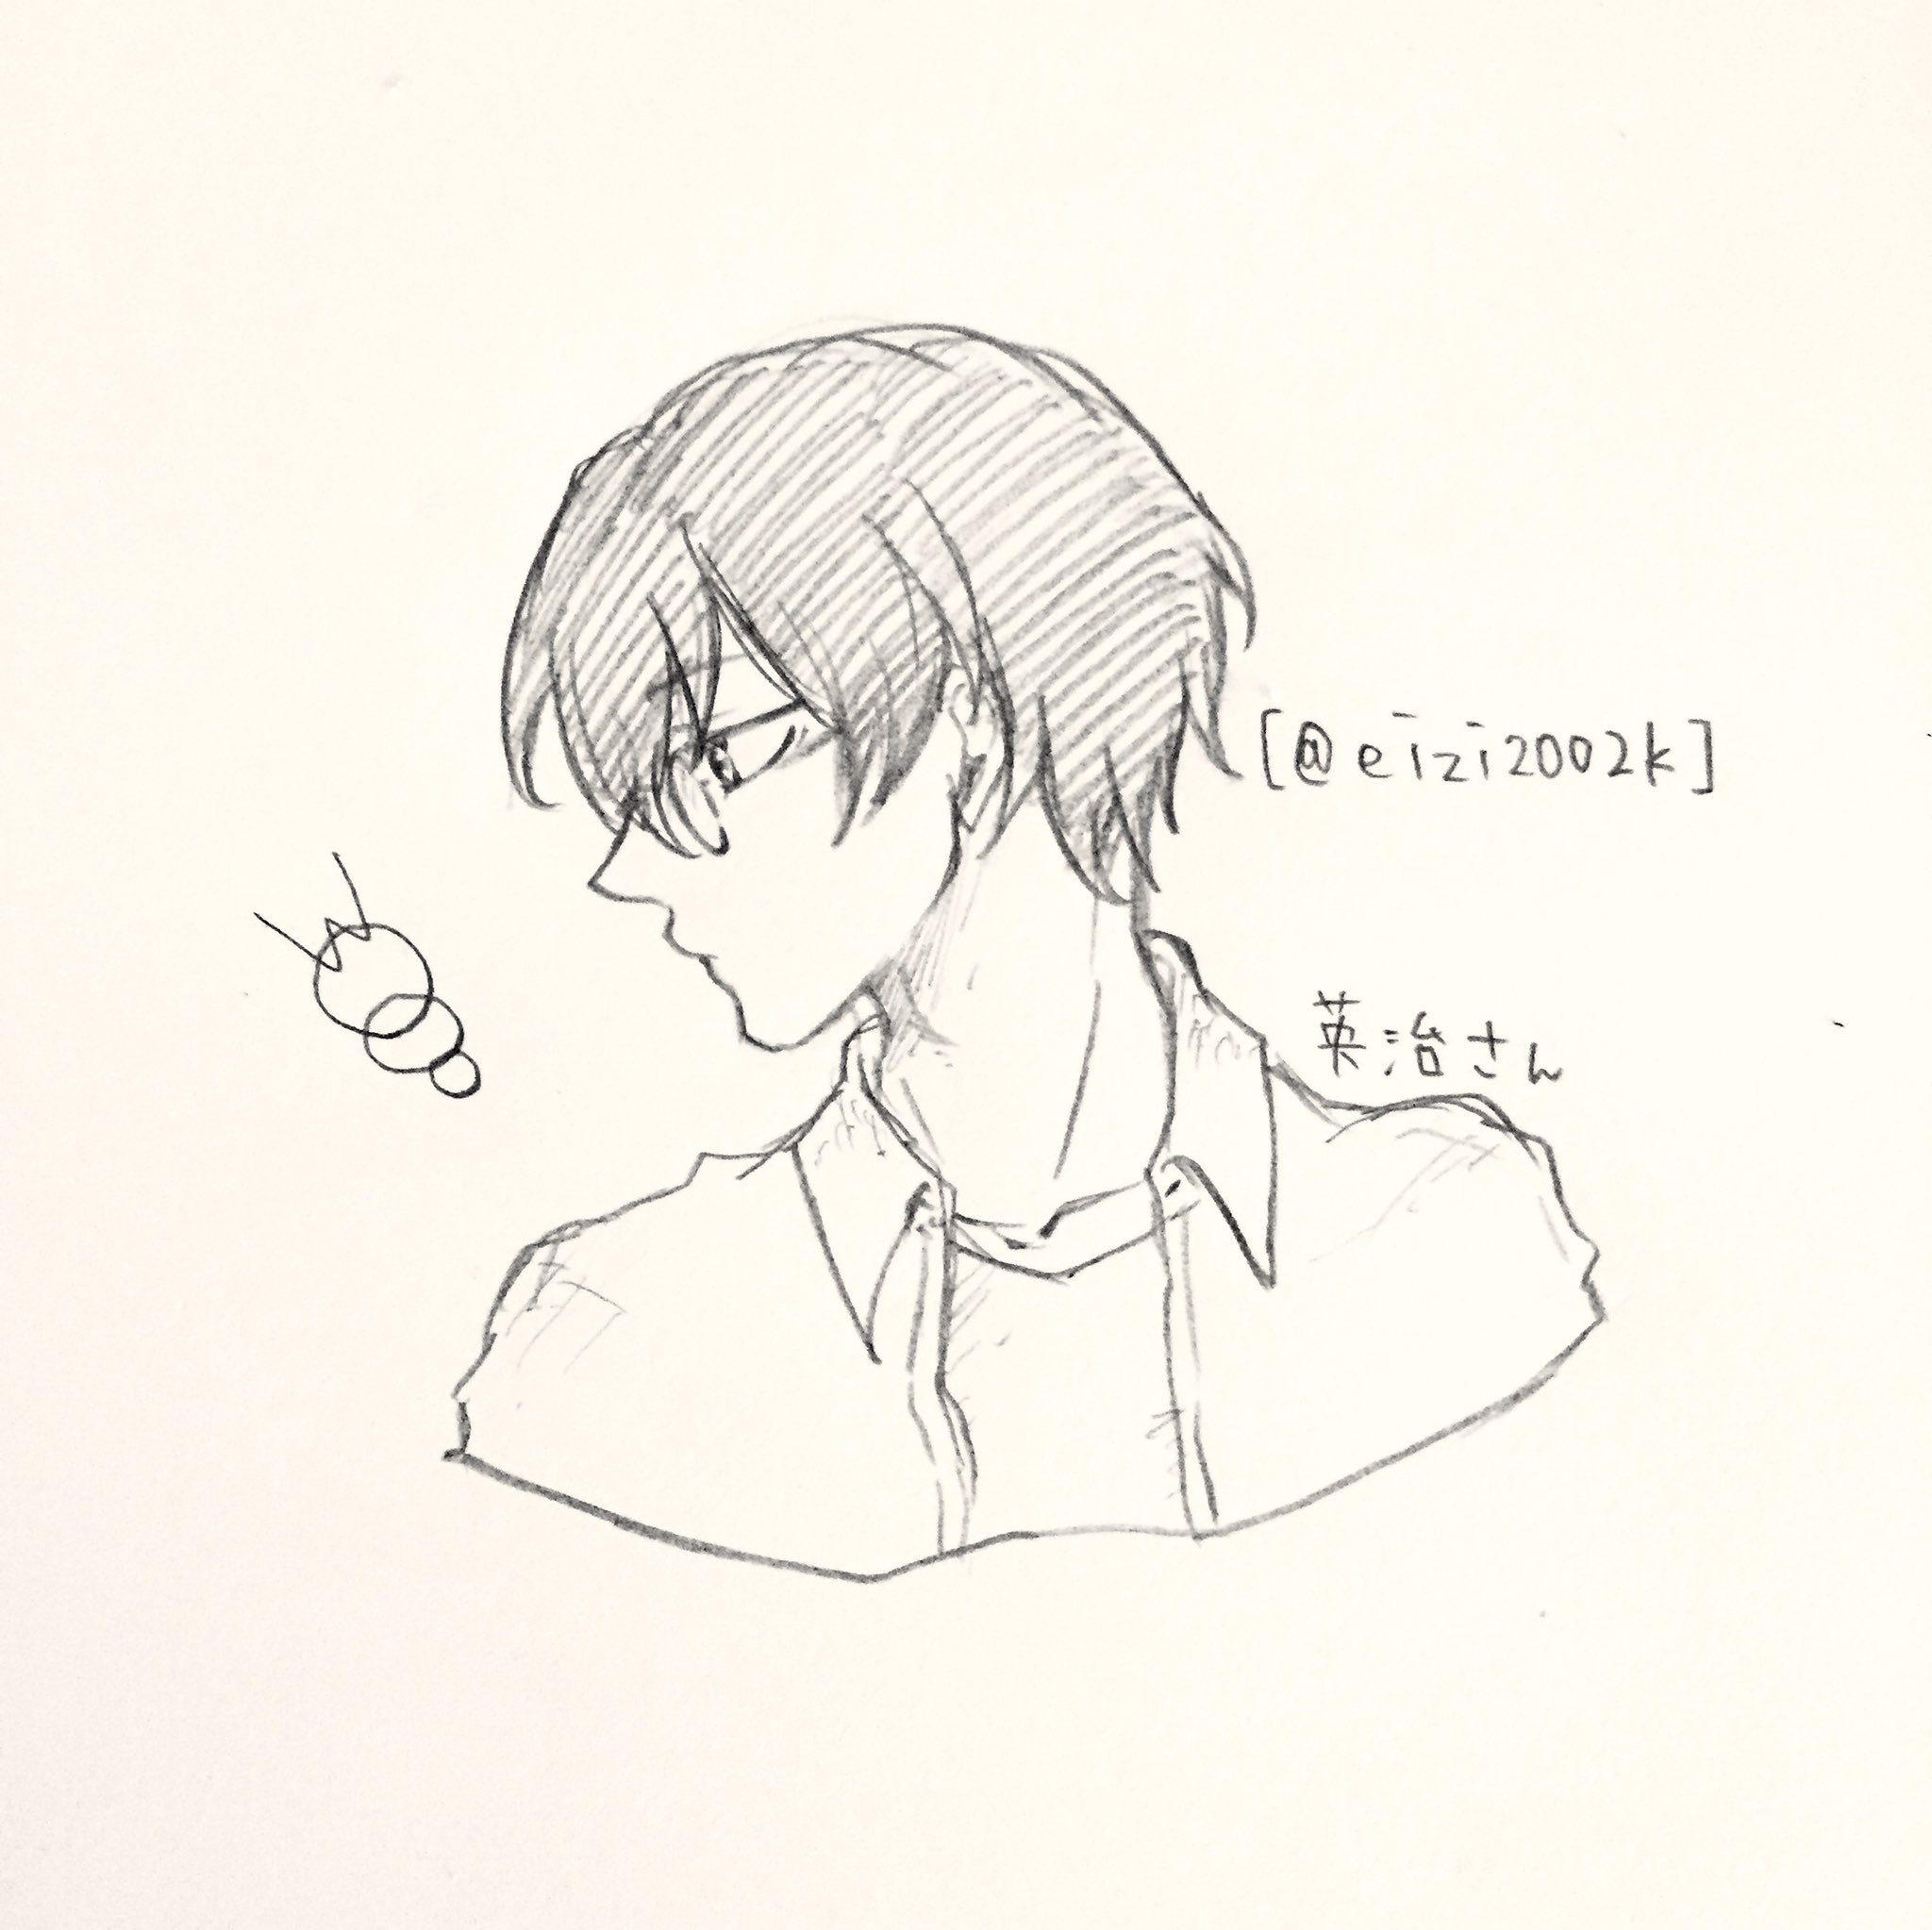 [@eizi2002k]
英治さん